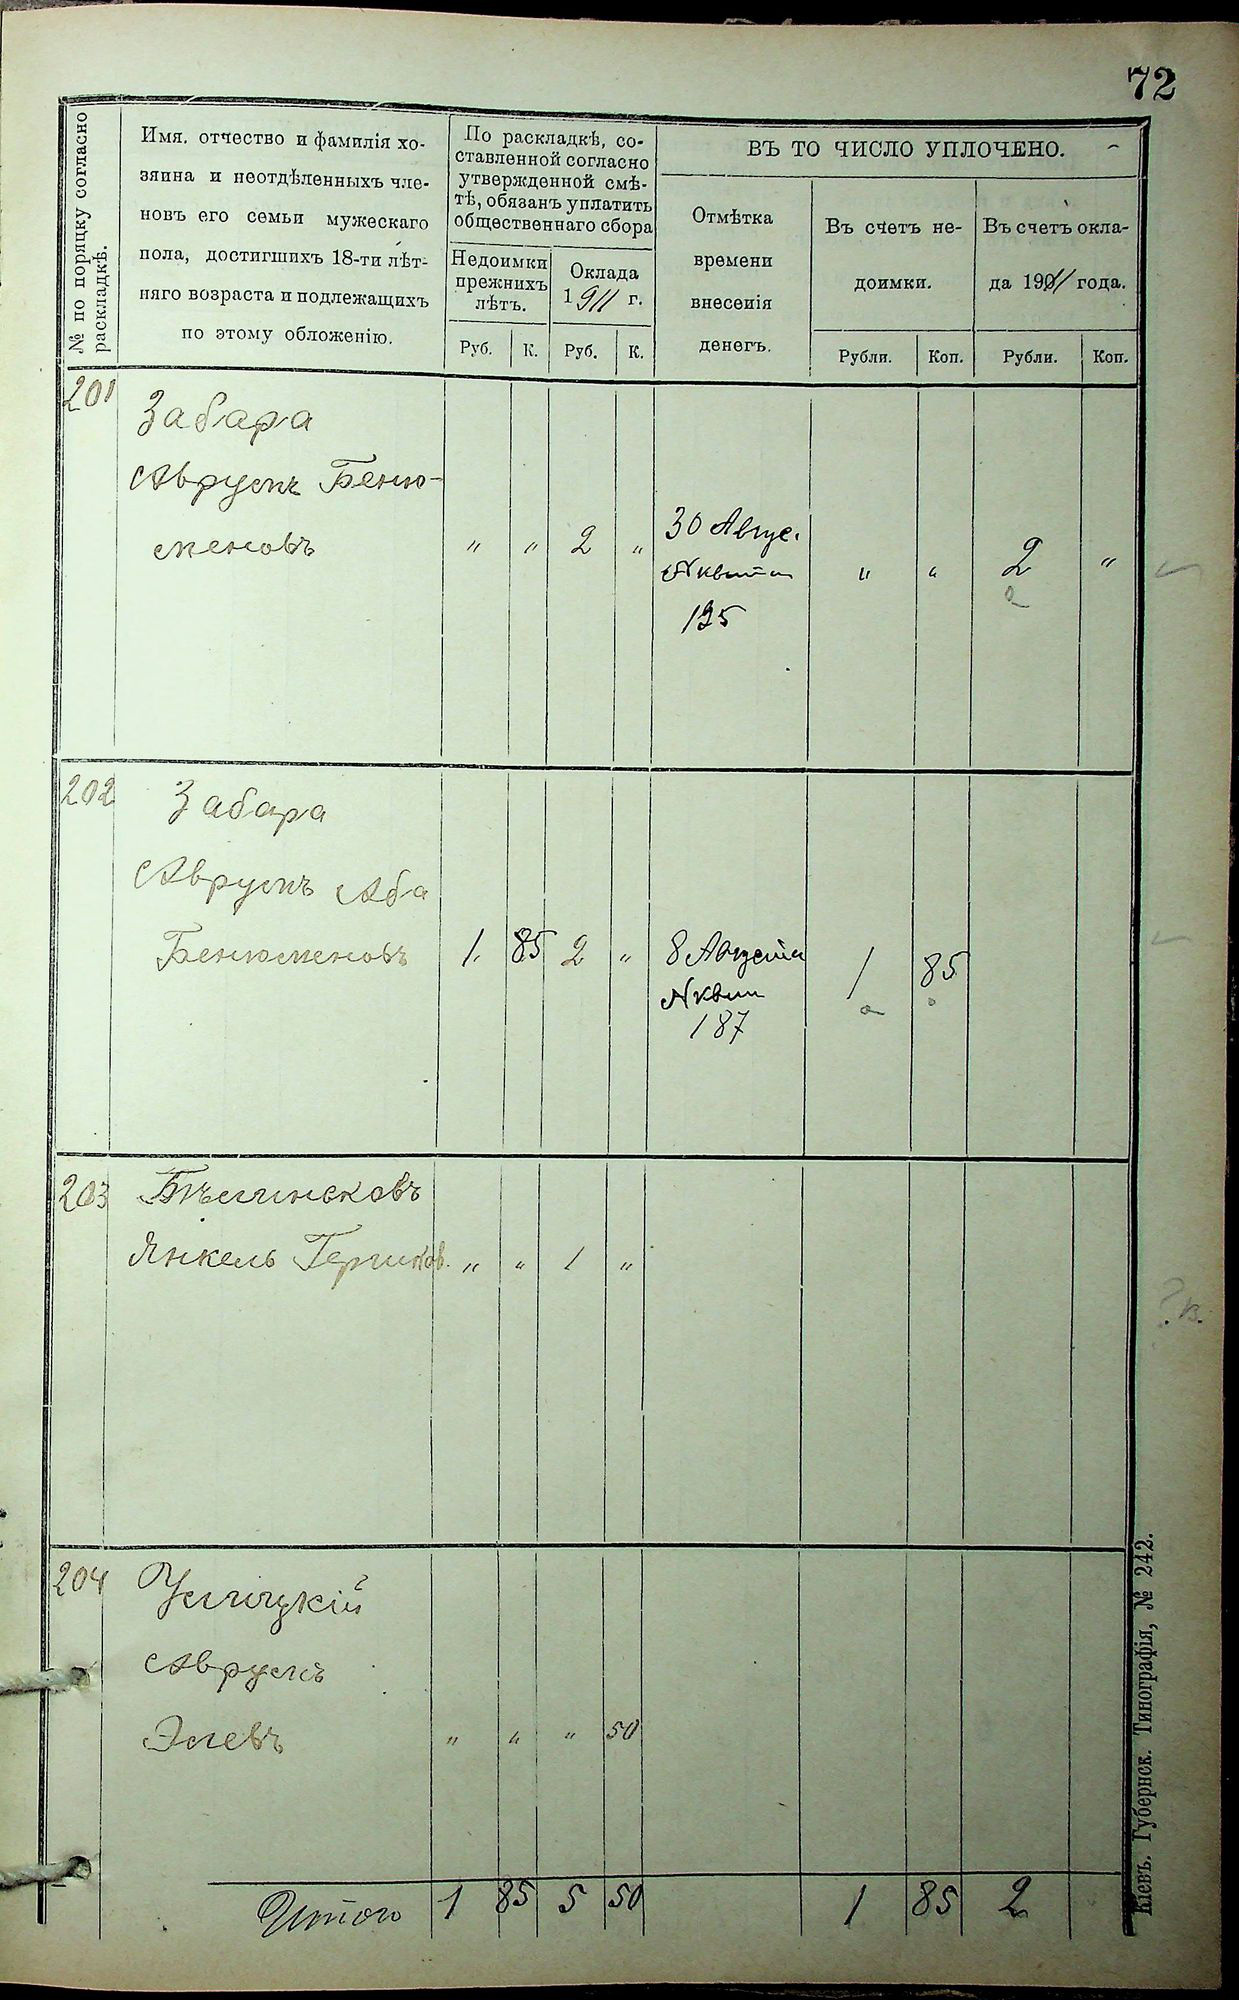 72
№ по порядку согласно
раскладкѣ.
Имя, отчество и фамилія хо-
зяина и неотдѣленныхъ чле-
новъ его семьи мужескаго
пола, достигшихъ 18-ти лѣт-
няго возраста и подлежащихъ
по этому обложенію.
По раскладкѣ, со-
ставленной согласно
утвержденной смѣ-
тѣ, обязанъ уплатить
общественнаго сбора
Недоимки
прежнихъ
лѣтъ.
Оклада
1911 г.
Руб. К. Руб. К.
ВЪ ТО ЧИСЛО УПЛОЧЕНО.
Отмѣтка
времени
внесенія
денегъ.
Въ счетъ не-
доимки.
Въ счетъ окла-
да 1911 года.
Рубли. Коп. Рубли. Коп.
201
Забара
Аврумъ Беню-
меновъ " " 2 "
30 Авгус.
№ квит
195
" " 2 "
202
Забара
Аврумъ Аба
Бенюменовъ 1 85 2 "
8 Августа
№ квит
187
1 85
203
Бѣлинсковъ
Янкель Гершков. " " 1 "
204
Улицкій
Аврумъ
Элевъ " " " 50
Итого 1 85 5 50 1 85 2
Кіевъ. Губернск. Типографія, № 242.